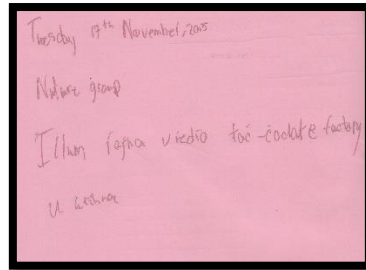 Tuesday 17th November, 2015
Nature group
Illum rajna vidio tac-coclate factory
u